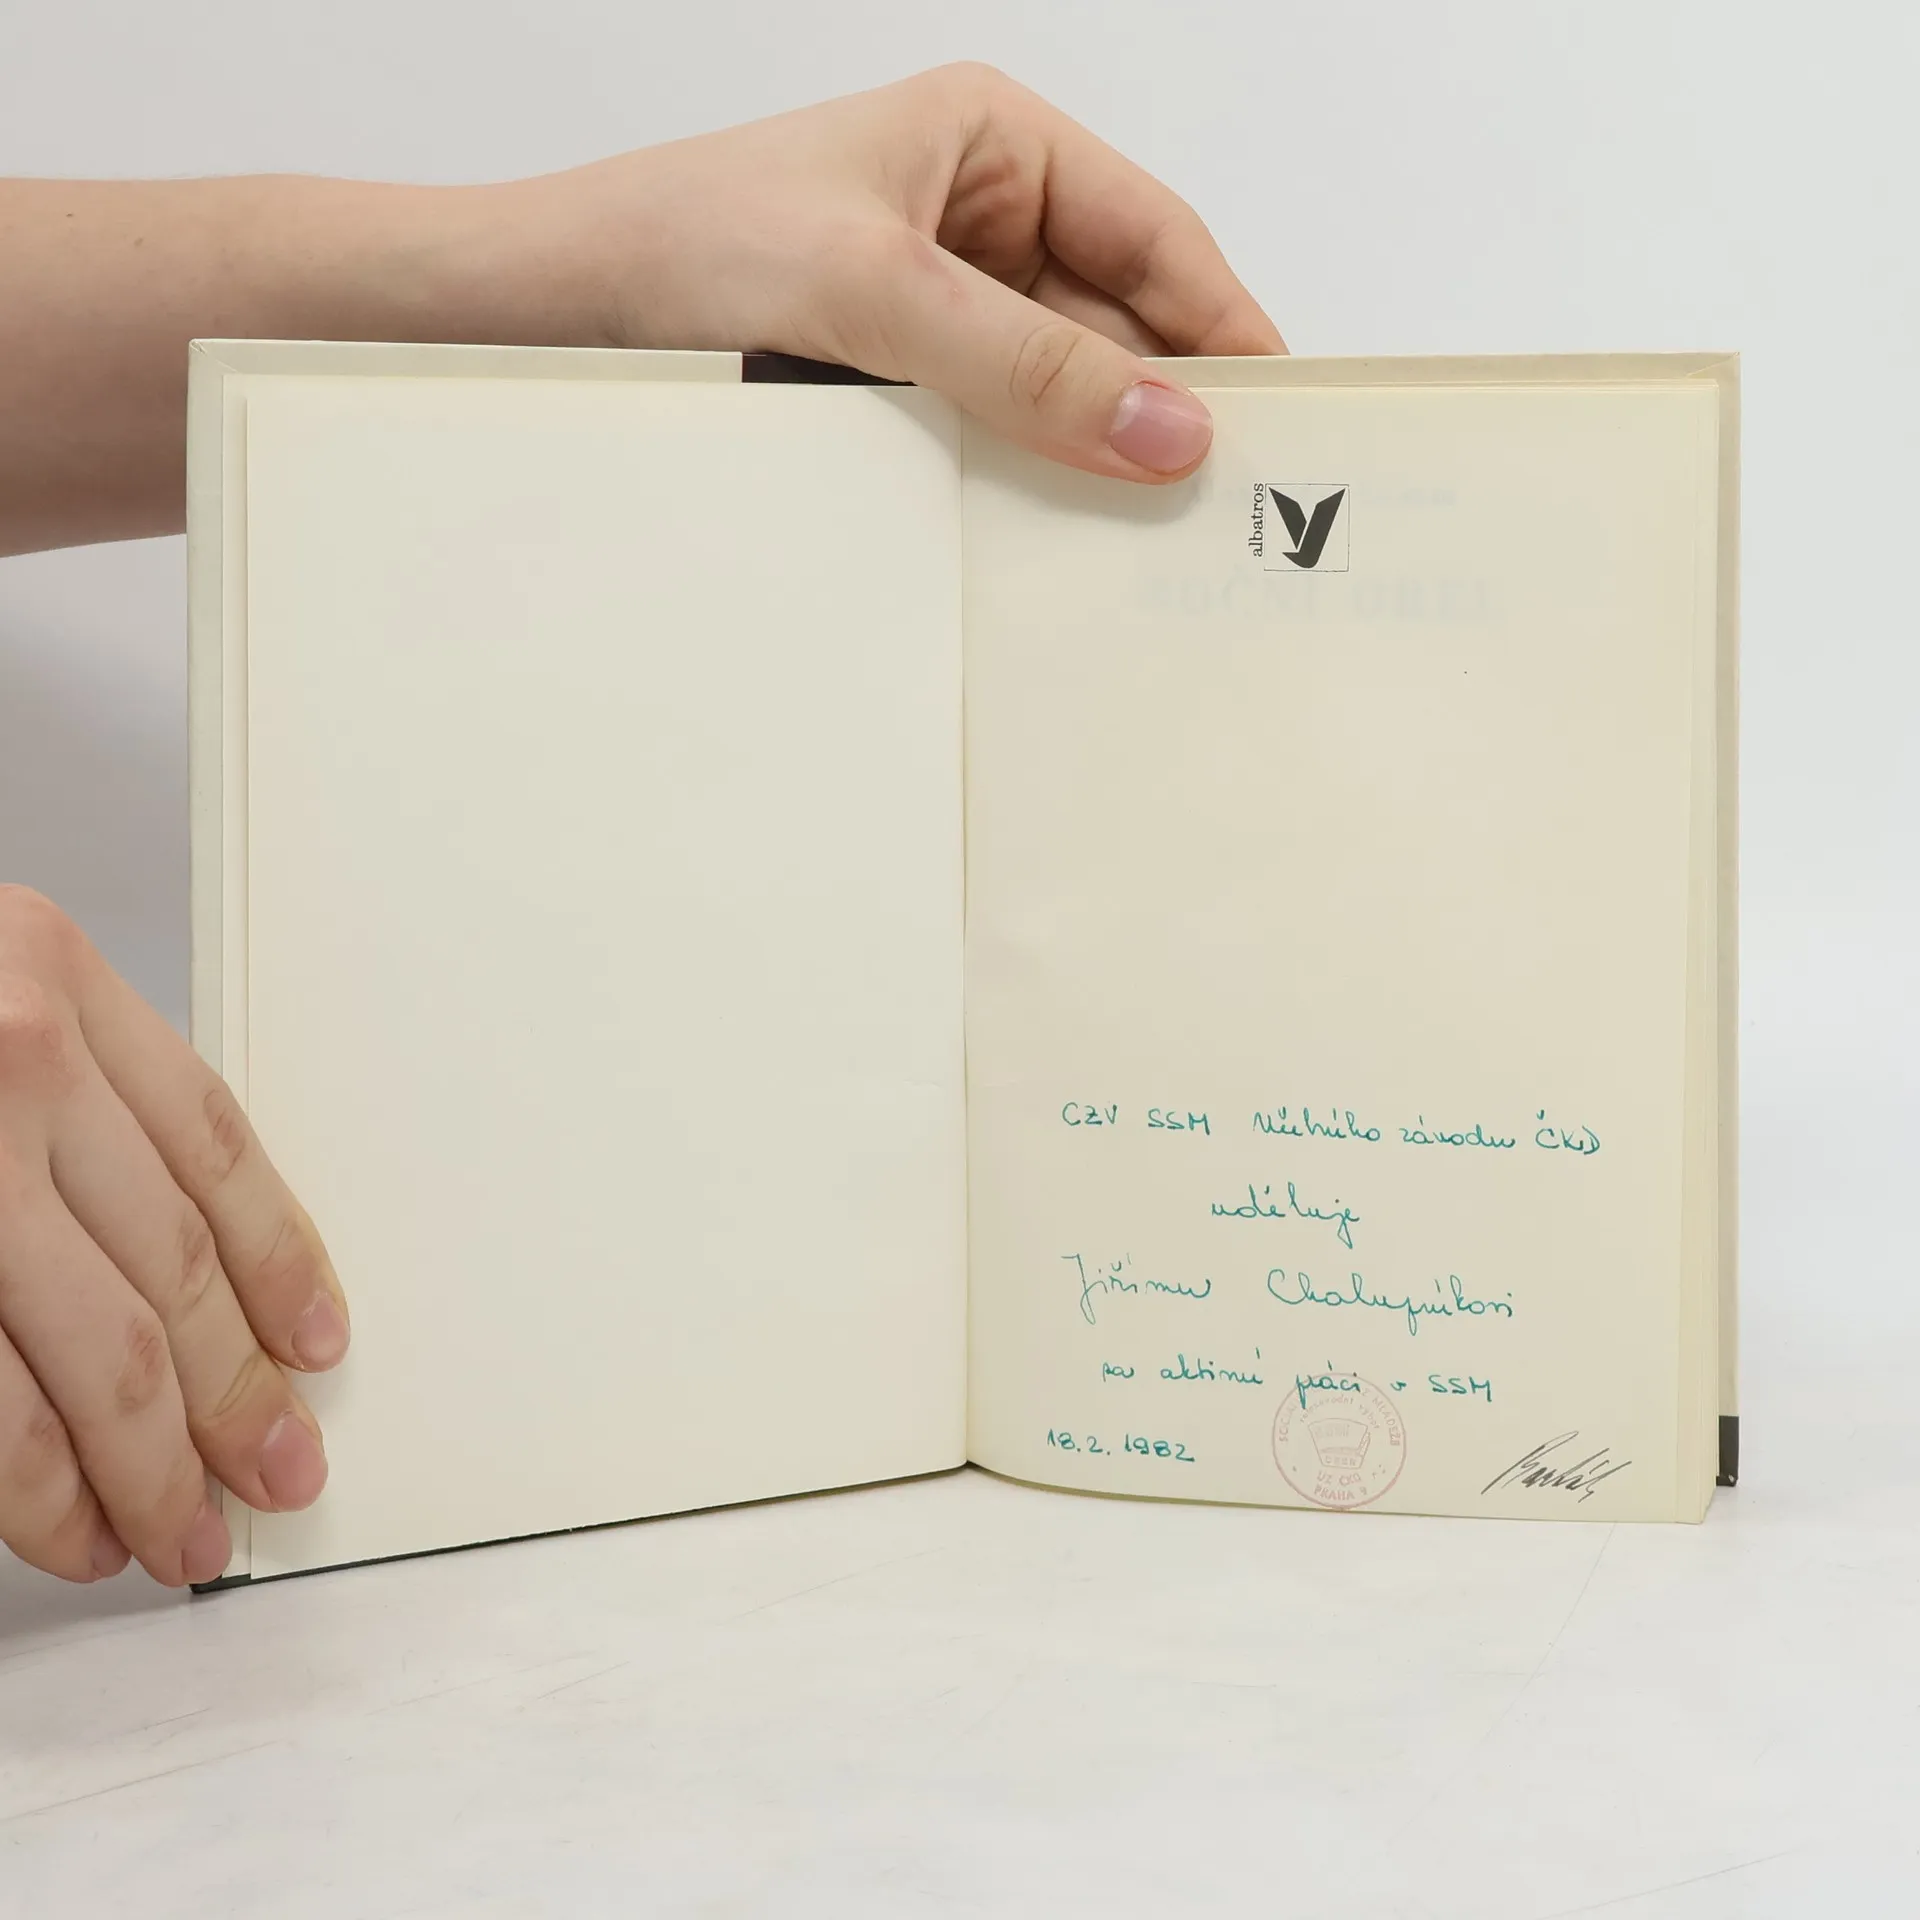 albatros
CZV SSM Učebního závodu ČKD
uděluje
Jiřímu Chalupníkovi
za aktivní práci v SSM
18.2.1982
MLÁDEŽE
celozávodní výbor
ÚZ ČKD
PRAHA 9